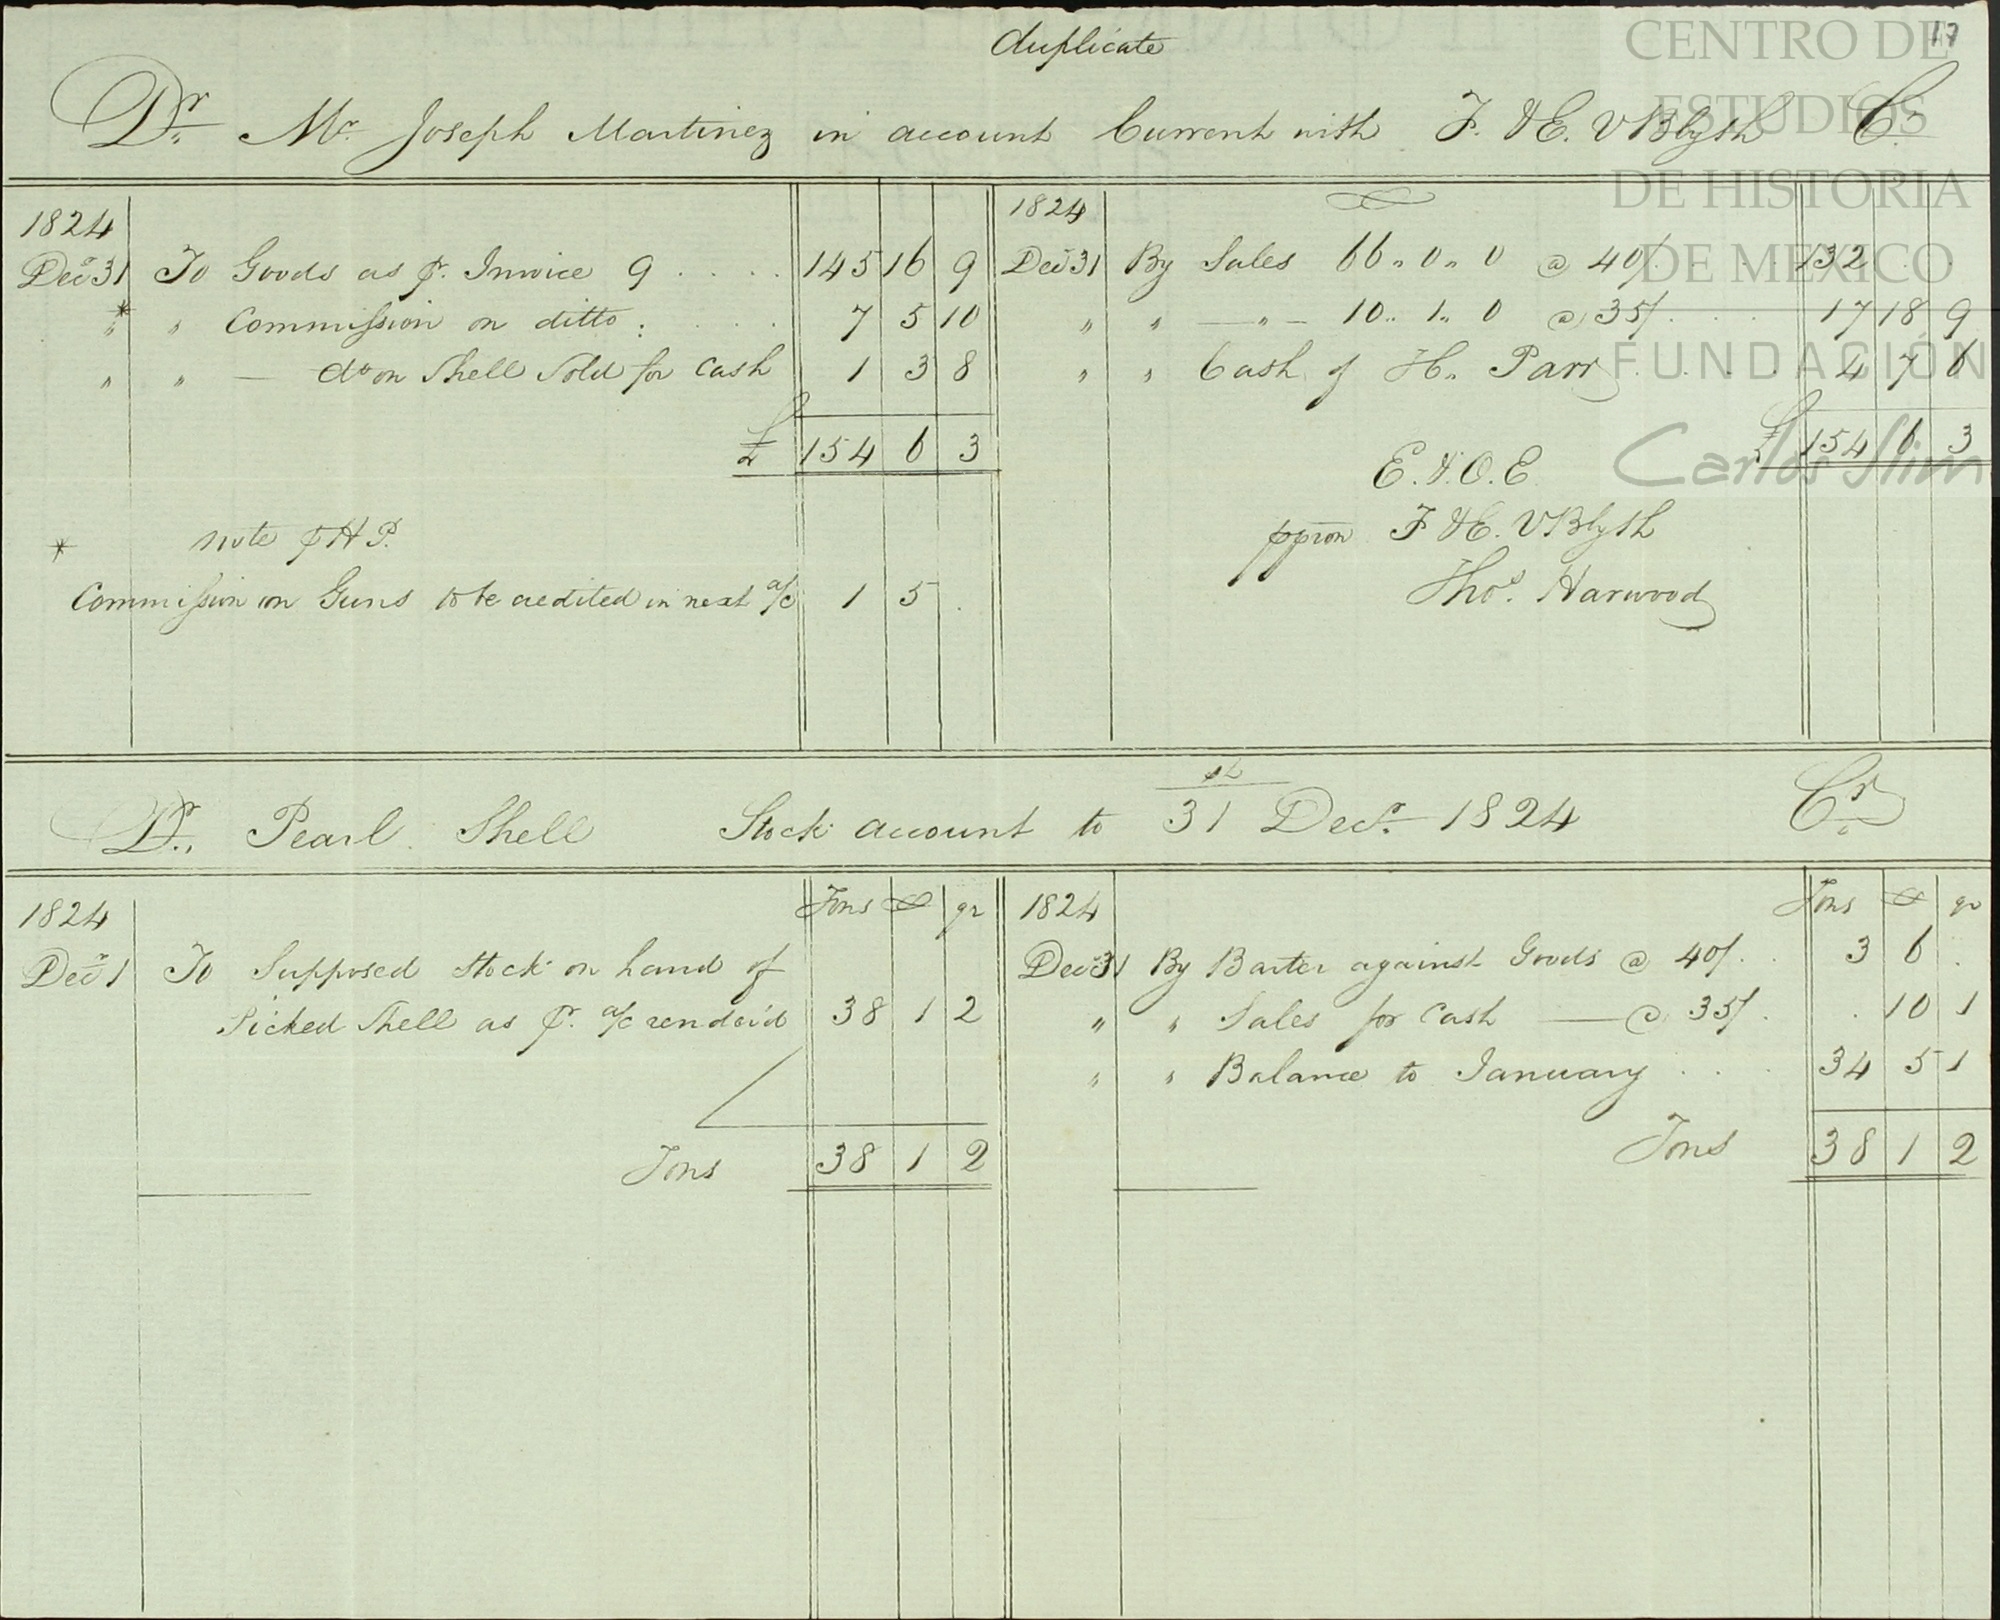 duplicate
17
Dr. Mr. Joseph Martinez in account Current with F. & E. V Blyth Cr.
1824
Decr 31 To Goods as pr. Invoice 9 .... 145 16 9
* " " Commission on ditto : .... 7 5 10
" " — do on Shell Sold for Cash 1 3 8
£ 154 6 3
* note p H P.
Commission on Guns to be credited in next a/c 1 5 .
1824
Decr 31 By Sales 66 " 0 " 0 @ 40/ . . . . 132 . .
" " — " — 10 " 1 " 0 @ 35/ . . . 17 18 9
" " Cash of H. Parr . . . . 4 7 6
£ 154 6 3
E. & O. E
ppron F & E. V Blyth
Thos. Harwood
Dr. Pearl Shell Stock account to 31st Decr. 1824 Cr.
1824 Tons ct qr
Decr 1 To Supposed Stock on hand of
Picked Shell as pr. a/c render'd 38 1 2
Tons 38 1 2
1824 Tons ct qr
Decr 31 By Barter against Goods @ 40/ . . 3 6 .
" " Sales for Cash — @ 35/ . . 10 1
" " Balance to January . . . 34 5 1
Tons 38 1 2
CENTRO DE
ESTUDIOS
DE HISTORIA
DE MEXICO
FUNDACIÓN
Carlos Slim